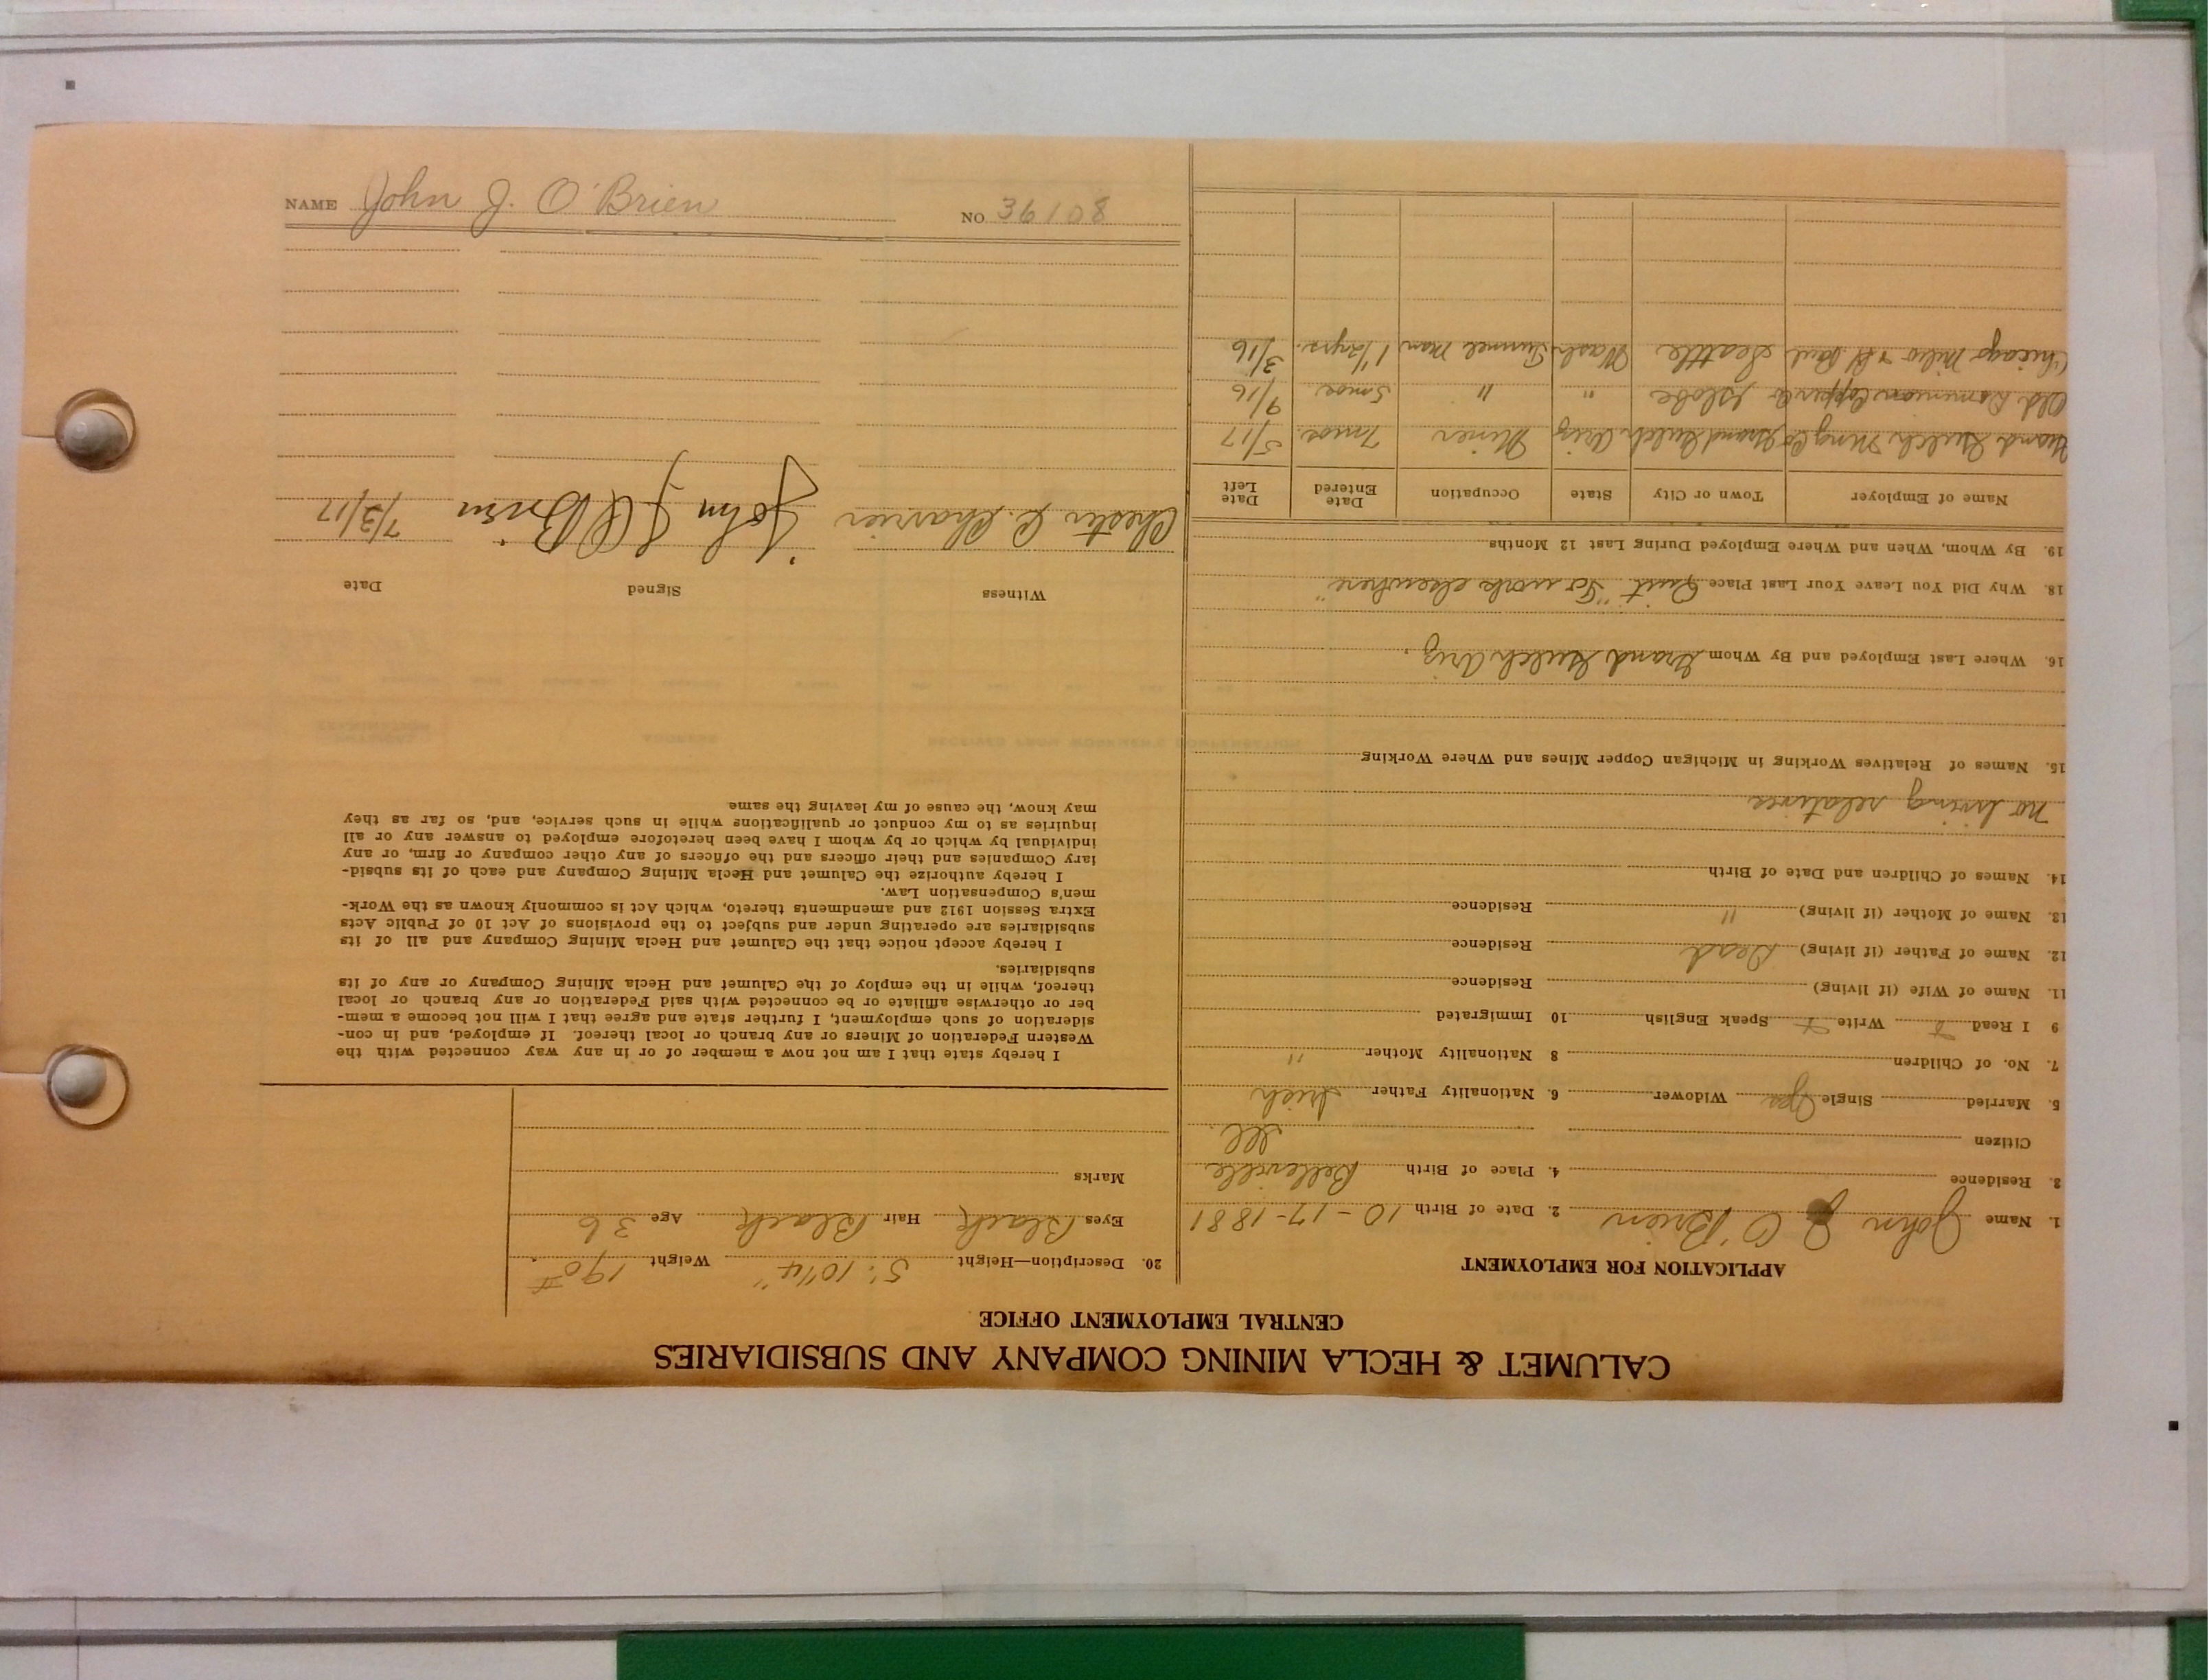 CALUMET & HECLA MINING COMPANY AND SUBSIDIARIES
CENTRAL EMPLOYMENT OFFICE
APPLICATION FOR EMPLOYMENT
1. Name John J O'Brien 2. Date of Birth 10-17-1881
3. Residence 4. Place of Birth Belleville
Citizen Ill.
5. Married Single Yes Widower 6. Nationality Father Irish
7. No. of Children 8 Nationality Mother "
9 I Read Write Speak English 10 Immigrated
11. Name of Wife (if living) Residence
12. Name of Father (if living) Dead Residence
13. Name of Mother (if living) " Residence
14. Names of Children and Date of Birth
no living relatives
15. Names of Relatives Working in Michigan Copper Mines and Where Working
16. Where Last Employed and By Whom Grand Gulch Ariz.
18. Why Did You Leave Your Last Place Quit "To work elsewhere"
19. By Whom, When and Where Employed During Last 12 Months
Name of Employer Town or City State Occupation Date Entered Date Left
Grand Gulch Mng Co Grand Gulch Ariz Miner 7 mos. 5/17
Old Dominion Copper Co Globe " " 5 mos. 9/16
Chicago Milw & St Paul Seattle Wash Tunnel Man 1 1/2 yrs. 3/16
20. Description—Height 5' 10 1/4" Weight 190 #
Eyes Black Hair Black Age 36
Marks
I hereby state that I am not now a member of or in any way connected with the
Western Federation of Miners or any branch or local thereof. If employed, and in con-
sideration of such employment, I further state and agree that I will not become a mem-
ber or otherwise affiliate or be connected with said Federation or any branch or local
thereof, while in the employ of the Calumet and Hecla Mining Company or any of its
subsidiaries.
I hereby accept notice that the Calumet and Hecla Mining Company and all of its
subsidiaries are operating under and subject to the provisions of Act 10 of Public Acts
Extra Session 1912 and amendments thereto, which Act is commonly known as the Work-
men's Compensation Law.
I hereby authorize the Calumet and Hecla Mining Company and each of its subsid-
iary Companies and their officers and the officers of any other company or firm, or any
individual by which or by whom I have been heretofore employed to answer any or all
inquiries as to my conduct or qualifications while in such service, and, so far as they
may know, the cause of my leaving the same
Witness Signed Date
Chester C. Charrier John J O'Brien 7/3/17
NAME John J. O'Brien NO 36108